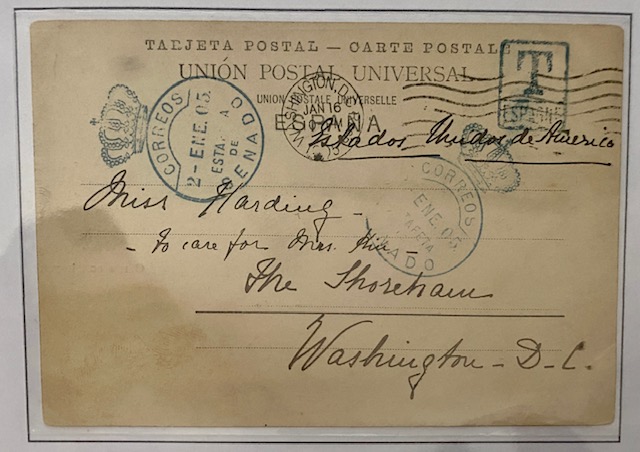 TARJETA POSTAL — CARTE POSTALE
UNIÓN POSTAL UNIVERSAL
UNION POSTALE UNIVERSELLE
ESPAÑA
T
ESPAGNE
WASHINGTON, D.C.
JAN 16
CORREOS
2-ENE.05.
ESTAFETA
DE
SENADO
Estados Unidos de America
CORREOS
ENE.05.
Miss Harding
- To care for Mrs.
The Shoreham
Washington - D.C.